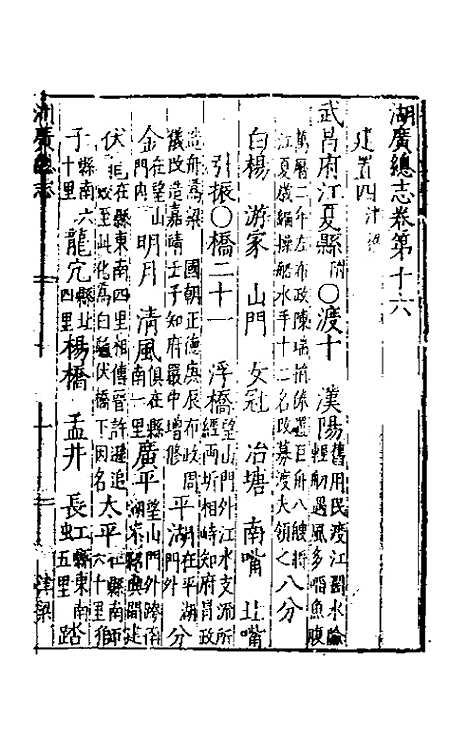 湖廣總志卷第十六
建置四 津梁
武昌府江夏縣附〇渡十 漢陽舊用民渡江闊水險輕舠遇風多噆魚腹
萬曆二年左布政陳瑞造巨舟八艘將
江夏歲編操船水手十二名改募渡夫領之 八分
白楊 游家 山門 女冠 冶塘 南嘴 北嘴
引振〇橋二十一 浮橋望山門外江水支涌所經兩圻相峙知府
造舟為梁 國朝正德庚辰布政周
儀改造嘉靖壬子知府嚴中增修 平湖在平湖門外 分
金在望山門內 明月 清風俱在縣南一里 廣平望山門外跨南湖
伏龍在縣東南四里相傳晉許遜追蛟至此化為白龍伏橋下因名 太平在縣南六十里
子縣南六十里 龍穴縣北四里 楊橋 孟井 長虹縣東南五里 踏
湖廣總志
津梁